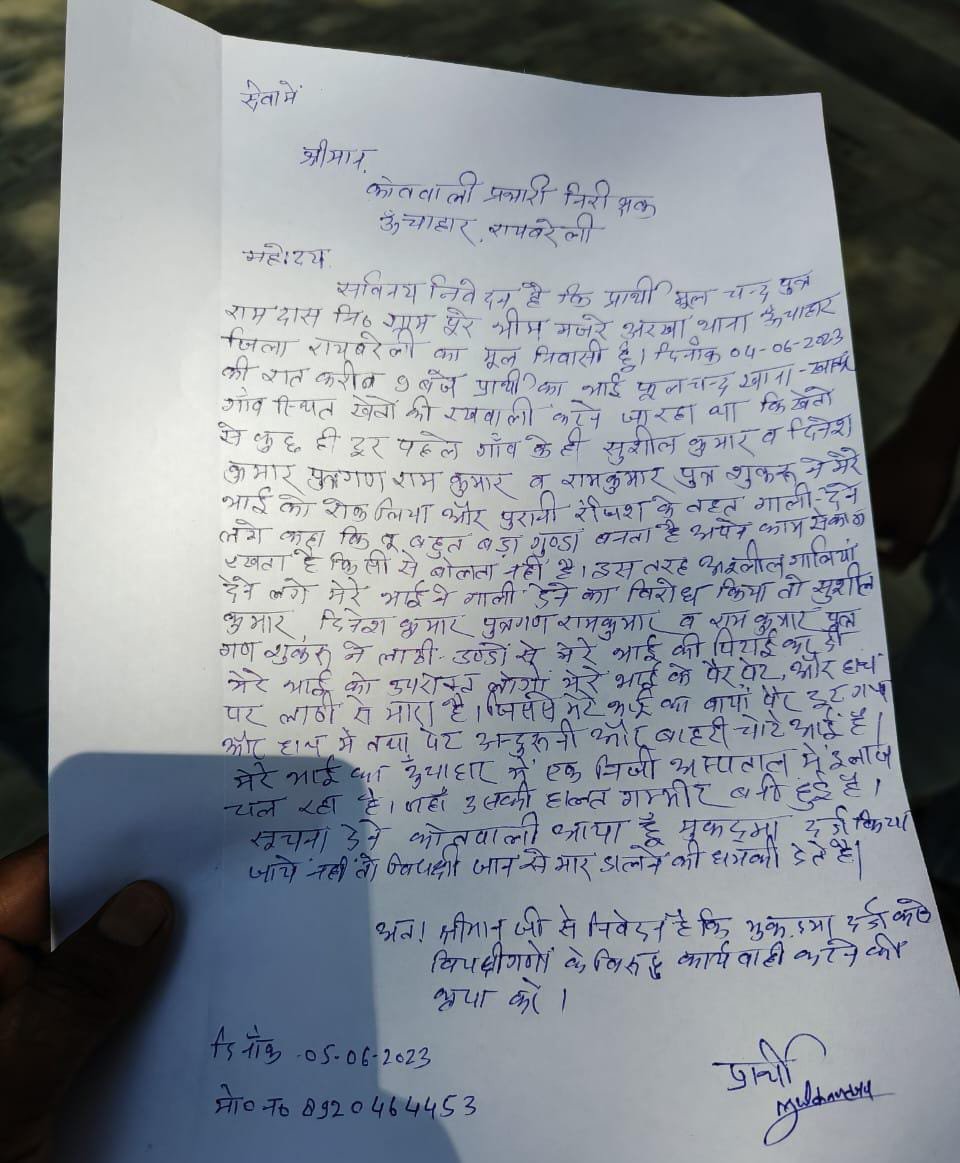 सेवामें
श्रीमान,
कोतवाली प्रभारी निरीक्षक
ऊँचाहार, रायबरेली
महोदय,
सविनय निवेदन है कि प्रार्थी मूल चन्द पुत्र
रामदास नि० ग्राम पूरे भीम मजरे अरखा थाना ऊँचाहार
जिला रायबरेली का मूल निवासी हूँ। दिनाँक 04-06-2023
की रात करीब 9 बजे प्रार्थी का भाई फूलचन्द खाना-खाकर
गाँव स्थित खेतों की रखवाली करने जा रहा था कि खेतों
से कुछ ही दूर पहले गाँव के ही सुशील कुमार व दिनेश
कुमार पुत्रगण राम कुमार व रामकुमार पुत्र शुकरू ने मेरे
भाई को रोक लिया और पुरानी रंजिश के तहत गाली-देने
लगे कहा कि तू बहुत बडा गुण्डा बनता है अपने काम से काम
रखता है किसी से बोलता नहीं है। इस तरह अश्लील गालियां
देने लगे मेरे भाई ने गाली देने का विरोध किया तो सुशील
कुमार, दिनेश कुमार पुत्रगण रामकुमार व राम कुमार पुत्र
गण शुकरू ने लाठी-डण्डों से मेरे भाई की पिटाई कर दी
मेरे भाई को उपरोक्त लोगों मेरे भाई के पैर पेट, और हाथ
पर लाठी से मारा है। जिससे मेरे भाई का बायाँ पैर टूट गया
और हाथ में तथा पेट अन्दुरूनी और बाहरी चोटे आई है।
मेरे भाई का ऊचाहार में एक निजी अस्पताल में इलाज
चल रहा है। जहाँ उसकी हालत गम्भीर बनी हुई है।
सूचना देने कोतवाली आया हूँ मुकदमा दर्ज किया
जाये नहीं तो विपक्षी जान से मार डालने की धमकी देते है।
अतः श्रीमान जी से निवेदन है कि मुकदमा दर्ज करके
विपक्षीगणों के विरुद्ध कार्यवाही करने की
कृपा करें।
दिनाँक -05-06-2023
मो० न० 8920464453
प्रार्थी
Mulchandra